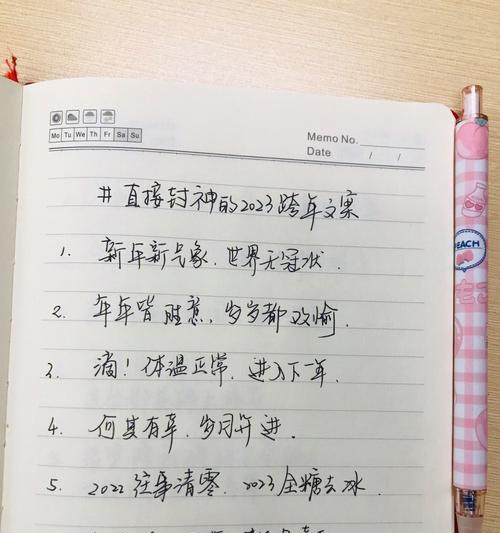 Mo Tu We Th Fr Sa Su
Memo No.
Date / /
# 直接封神的2023跨年文案
1. 新年新气象. 世界无冠状.
2. 年年皆胜意, 岁岁都欢愉.
3. 滴! 体温正常, 进入下一年.
4. 何其有幸, 岁月并进.
5. 2022往事清零, 2023全糖去冰.
PEACH